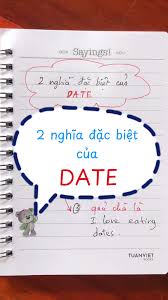 Sayings!
2 nghĩa đặc biệt của
DATE
2 nghĩa đặc biệt
của
DATE
quả chà là
I love eating
dates.
TUANVIET